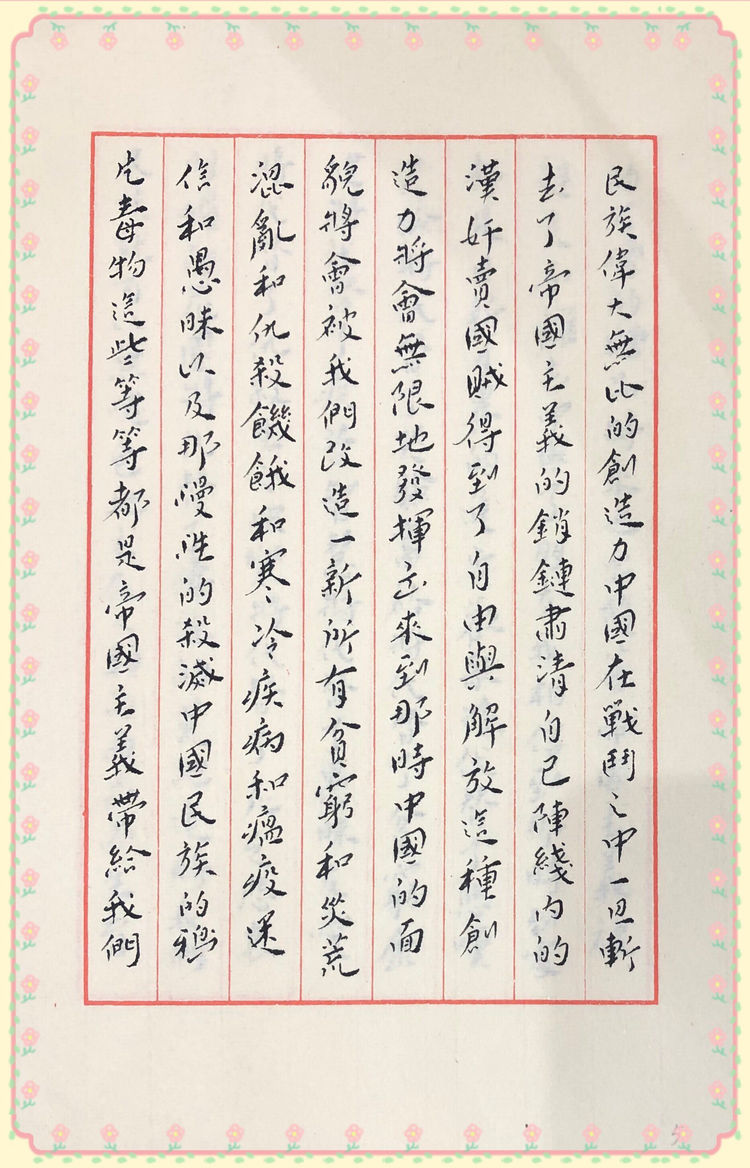 民族偉大無比的創造力中國在戰鬥之中一旦斬
去了帝國主義的銷鏈肅清自己陣綫內的
漢奸賣國賊得到了自由與解放這種創
造力將會無限地發揮出來到那時中國的面
貌將會被我們改造一新所有貧窮和災荒
混亂和仇殺饑餓和寒冷疾病和瘟疫迷
信和愚昧以及那慢性的殺滅中國民族的鴉
片毒物這些等等都是帝國主義帶給我們